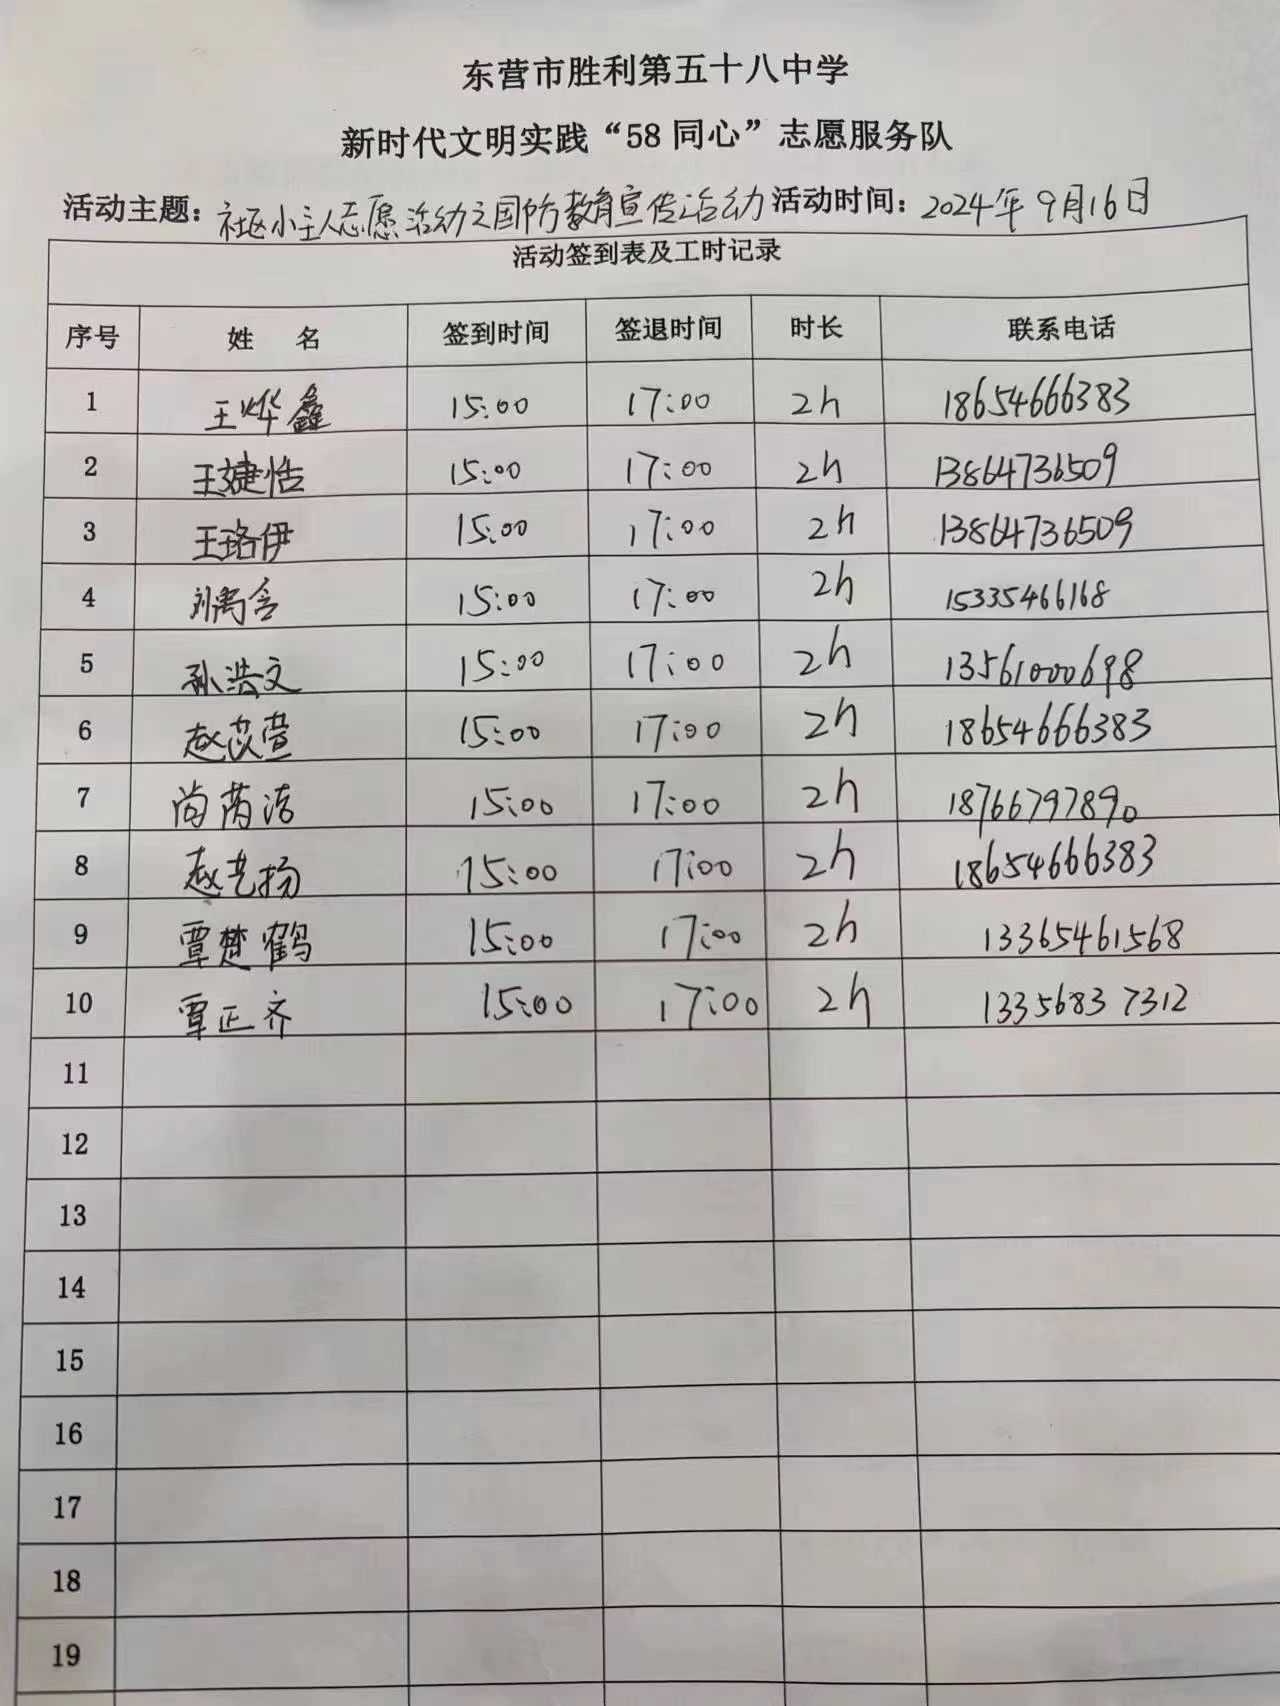 东营市胜利第五十八中学
新时代文明实践“58 同心”志愿服务队
活动主题：社区小主人志愿活动之国防教育宣传活动 活动时间：2024年9月16日
活动签到表及工时记录
序号 姓 名 签到时间 签退时间 时长 联系电话
1 王烨鑫 15:00 17:00 2h 18654666383
2 王婕恬 15:00 17:00 2h 13864736509
3 王珞伊 15:00 17:00 2h 13864736509
4 刘禹含 15:00 17:00 2h 15335466168
5 孙浩文 15:00 17:00 2h 13561000698
6 赵苡萱 15:00 17:00 2h 18654666383
7 尚芮洁 15:00 17:00 2h 18766797890
8 赵艺扬 15:00 17:00 2h 18654666383
9 覃楚鹤 15:00 17:00 2h 13365461568
10 覃正齐 15:00 17:00 2h 13356837312
11
12
13
14
15
16
17
18
19